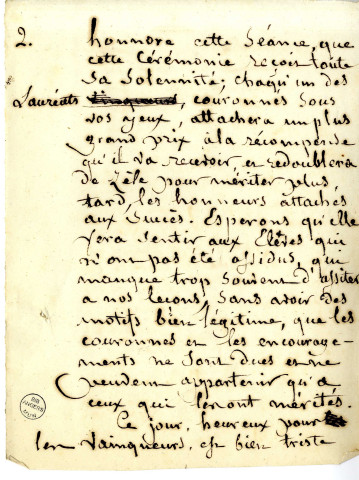 2. honnore cette séance, que
cette Cérémonie reçoit toute
sa Solennité; chaqu'un des
Lauréats, couronnés sous
vos yeux, attachera un plus
grand prix à la récompense
qu'il va recevoir, et redoublera
de zèle pour mériter plus,
tard, les honneurs attachés
aux Succès. Esperons qu'elle
fera sentir aux Elèves qui
n'ont pas été assidus, qui
manque trop souvent d'assister
a nos leçons, sans avoir des
motifs bien légitime, que les
couronnes et les encourage-
ments ne sont dues et ne
peuvent appartenir qu'a
ceux qui les ont mérités.
Ce jour, heureux pour
les vainqueurs, est bien triste
BIB
ANGERS